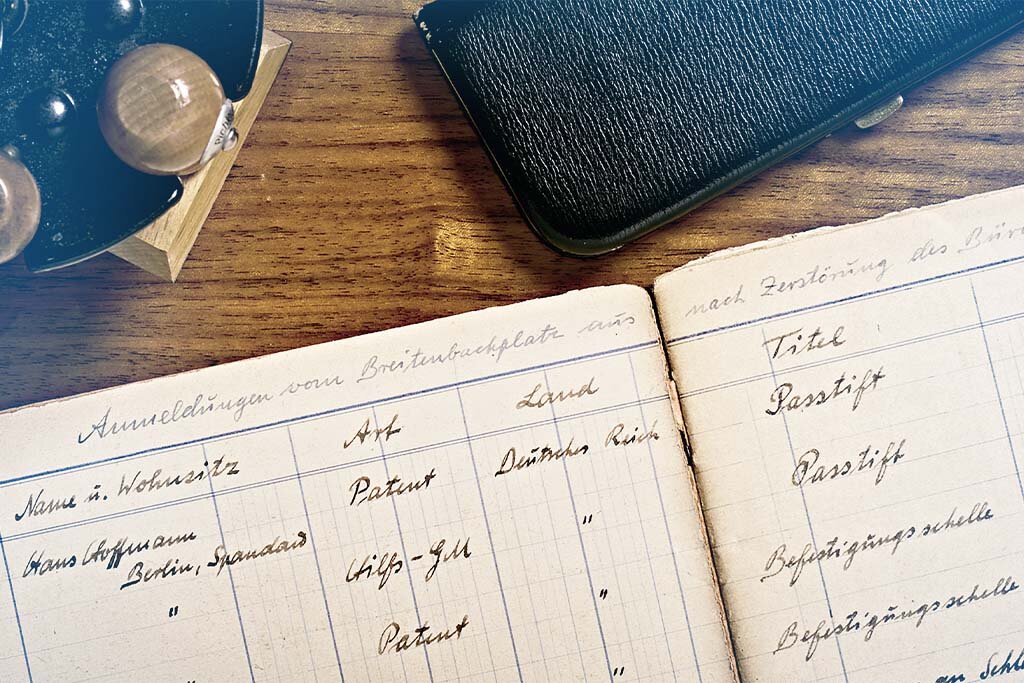 Anmeldungen vom Breitenbachplatz aus nach Zerstörung des
Name u. Wohnsitz Art Land Titel
Hans Hoffmann Patent Deutsches Reich Passtift
Berlin, Spandau
" Hilfs-GM " Passtift
Patent " Befestigungsschelle
" Befestigungsschelle
an